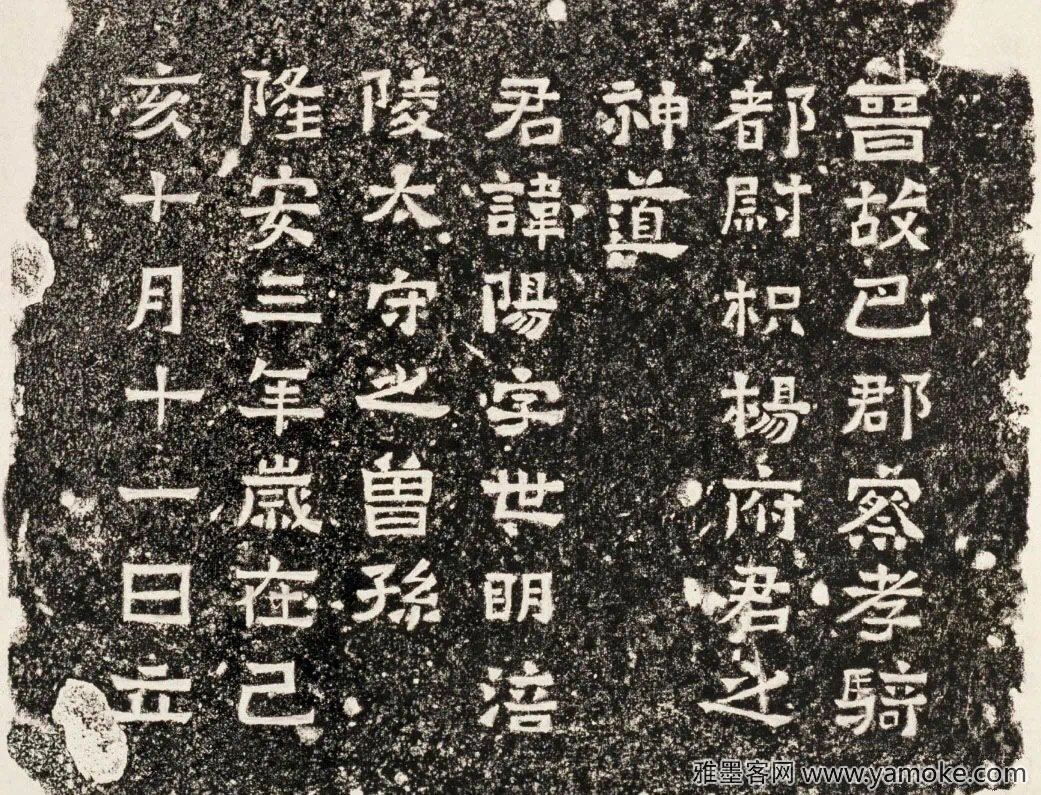 晉故巴郡察孝騎
都尉枳楊府君之
神道
君諱陽字世明涪
陵太守之曾孫
隆安三年歲在己
亥十月十一日立
雅墨客网 www.yamoke.com